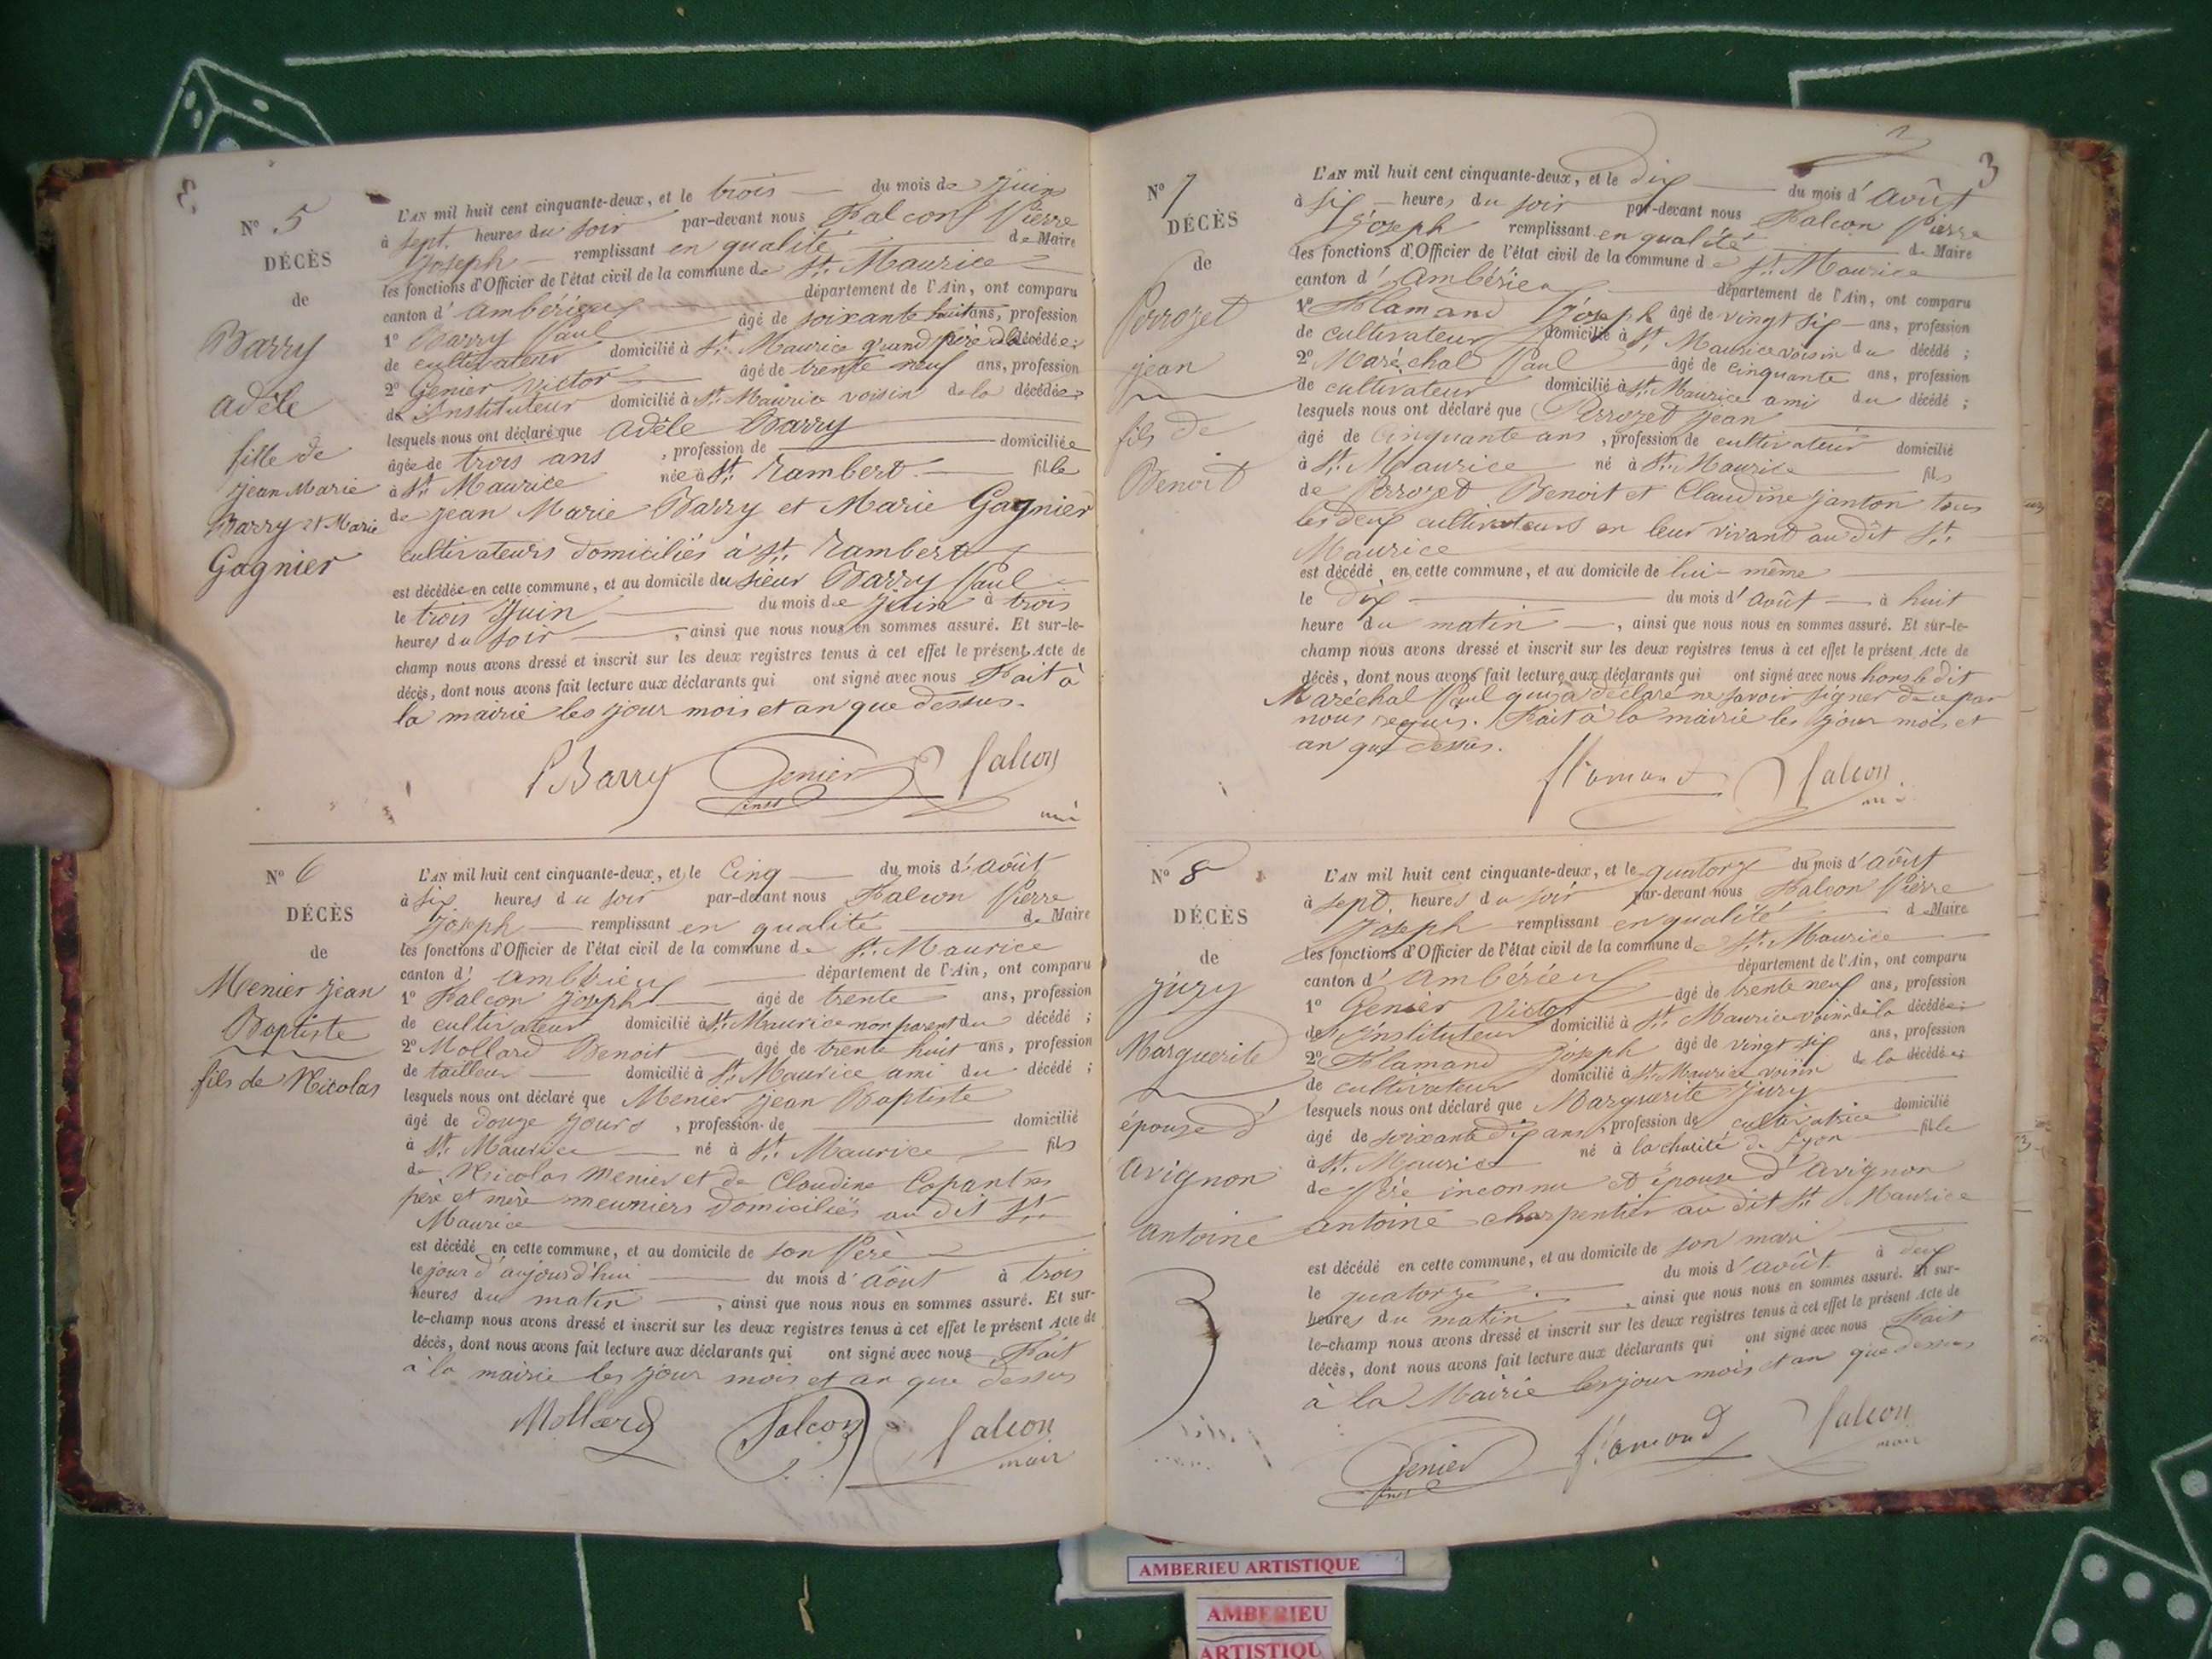 3
N° 5
DÉCÈS
de
Barry
adèle
fille de
jean Marie
Barry et Marie
Gagnier
L'AN mil huit cent cinquante-deux, et le trois du mois de Juin
à sept heures du soir par-devant nous Falcon Pierre
Joseph remplissant en qualité de Maire
les fonctions d'Officier de l'état civil de la commune de St. Maurice
canton d'ambérieux département de l'Ain, ont comparu
1° Barry Paul âgé de soixante huit ans, profession
de cultivateur domicilié à St. Maurice grand père de la décédée;
2° Genier victor âgé de trente neuf ans, profession
de Instituteur domicilié à St. Maurice voisin de la décédée
lesquels nous ont déclaré que adèle Barry
âgée de trois ans, profession de domiciliée
à St. Maurice née à St. Rambert fille
de jean Marie Barry et Marie Gagnier
cultivateurs domiciliés à St. Rambert
est décédée en cette commune, et au domicile du sieur Barry Paul
le trois Juin du mois de juin à trois
heures du soir, ainsi que nous nous en sommes assuré. Et sur-le-
champ nous avons dressé et inscrit sur les deux registres tenus à cet effet le présent Acte de
décès, dont nous avons fait lecture aux déclarants qui ont signé avec nous Fait à
la mairie les jour mois et an que dessus.
P Barry Genier inst falcon
N° 6
DÉCÈS
de
Menier jean
Baptiste
fils de Nicolas
L'AN mil huit cent cinquante-deux, et le Cinq du mois d'août
à six heures du soir par-devant nous Falcon Pierre
Joseph remplissant en qualité de Maire
les fonctions d'Officier de l'état civil de la commune de St. Maurice
canton d' département de l'Ain, ont comparu
1° Falcon joseph âgé de trente ans, profession
de cultivateur domicilié à St. Maurice non parent du décédé;
2° Mollard Benoit âgé de trente huit ans, profession
de tailleur domicilié à St. Maurice ami du décédé;
lesquels nous ont déclaré que Menier jean Baptiste
âgé de douze jours, profession de domicilié
à St. Maurice né à St. Maurice fils
de Nicolas Menier et de Claudine
père et mère meuniers domiciliés au dit St.
Maurice
est décédé en cette commune, et au domicile de son Père
le jour d'aujourd'hui du mois d'août à trois
heures du matin, ainsi que nous nous en sommes assuré. Et sur-
le-champ nous avons dressé et inscrit sur les deux registres tenus à cet effet le présent Acte de
décès, dont nous avons fait lecture aux déclarants qui ont signé avec nous Fait
à la mairie les jour mois et an que dessus
Mollard Falcon falcon
mair
3
N° 7
DÉCÈS
de
Perrozet
jean
fils de
Benoit
L'AN mil huit cent cinquante-deux, et le dix du mois d'août
à six heures du soir par-devant nous Falcon Pierre
Joseph remplissant en qualité de Maire
les fonctions d'Officier de l'état civil de la commune de St. Maurice
canton d'ambérieu département de l'Ain, ont comparu
1° Flamand Joseph âgé de vingt six ans, profession
de cultivateur domicilié à St. Maurice voisin du décédé;
2° Maréchal Paul âgé de cinquante ans, profession
de cultivateur domicilié à St. Maurice ami du décédé;
lesquels nous ont déclaré que Perrozet jean
âgé de cinquante ans, profession de cultivateur domicilié
à St. Maurice né à St. Maurice fils
de Perrozet Benoit et Claudine janton tous
les deux cultivateurs en leur vivant au dit St.
Maurice
est décédé en cette commune, et au domicile de lui-même
le dix du mois d'août à huit
heure du matin, ainsi que nous nous en sommes assuré. Et sur-le-
champ nous avons dressé et inscrit sur les deux registres tenus à cet effet le présent Acte de
décès, dont nous avons fait lecture aux déclarants qui ont signé avec nous hors le dit
Maréchal Paul qui a déclaré ne savoir signer de ce par
nous requis. Fait à la mairie les jour mois et
an que dessus.
flamand falcon
N° 8
DÉCÈS
de
jury
Marguerite
épouse d'
avignon
antoine
L'AN mil huit cent cinquante-deux, et le quatorze du mois d'août
à sept heures du soir par-devant nous Falcon Pierre
Joseph remplissant en qualité de Maire
les fonctions d'Officier de l'état civil de la commune de St. Maurice
canton d'ambérieux département de l'Ain, ont comparu
1° Genier Victor âgé de trente neuf ans, profession
de Instituteur domicilié à St. Maurice voisin de la décédée;
2° Flamand joseph âgé de vingt six ans, profession
de cultivateur domicilié à St. Maurice voisin de la décédée
lesquels nous ont déclaré que Marguerite jury
âgé de soixante dix ans, profession de cultivatrice domicilié
à St. Maurice né à la charité de Lyon fille
de Père inconnu et épouse d'avignon
antoine charpentier au dit St. Maurice
est décédé en cette commune, et au domicile de son mari
le quatorze du mois d'août à deux
heures du matin, ainsi que nous nous en sommes assuré. Et sur-
le-champ nous avons dressé et inscrit sur les deux registres tenus à cet effet le présent Acte de
décès, dont nous avons fait lecture aux déclarants qui ont signé avec nous Fait
à la Mairie les jour mois et an que dessus
Genier inst flamand falcon
mair
AMBERIEU ARTISTIQUE
AMBERIEU
ARTISTIQU